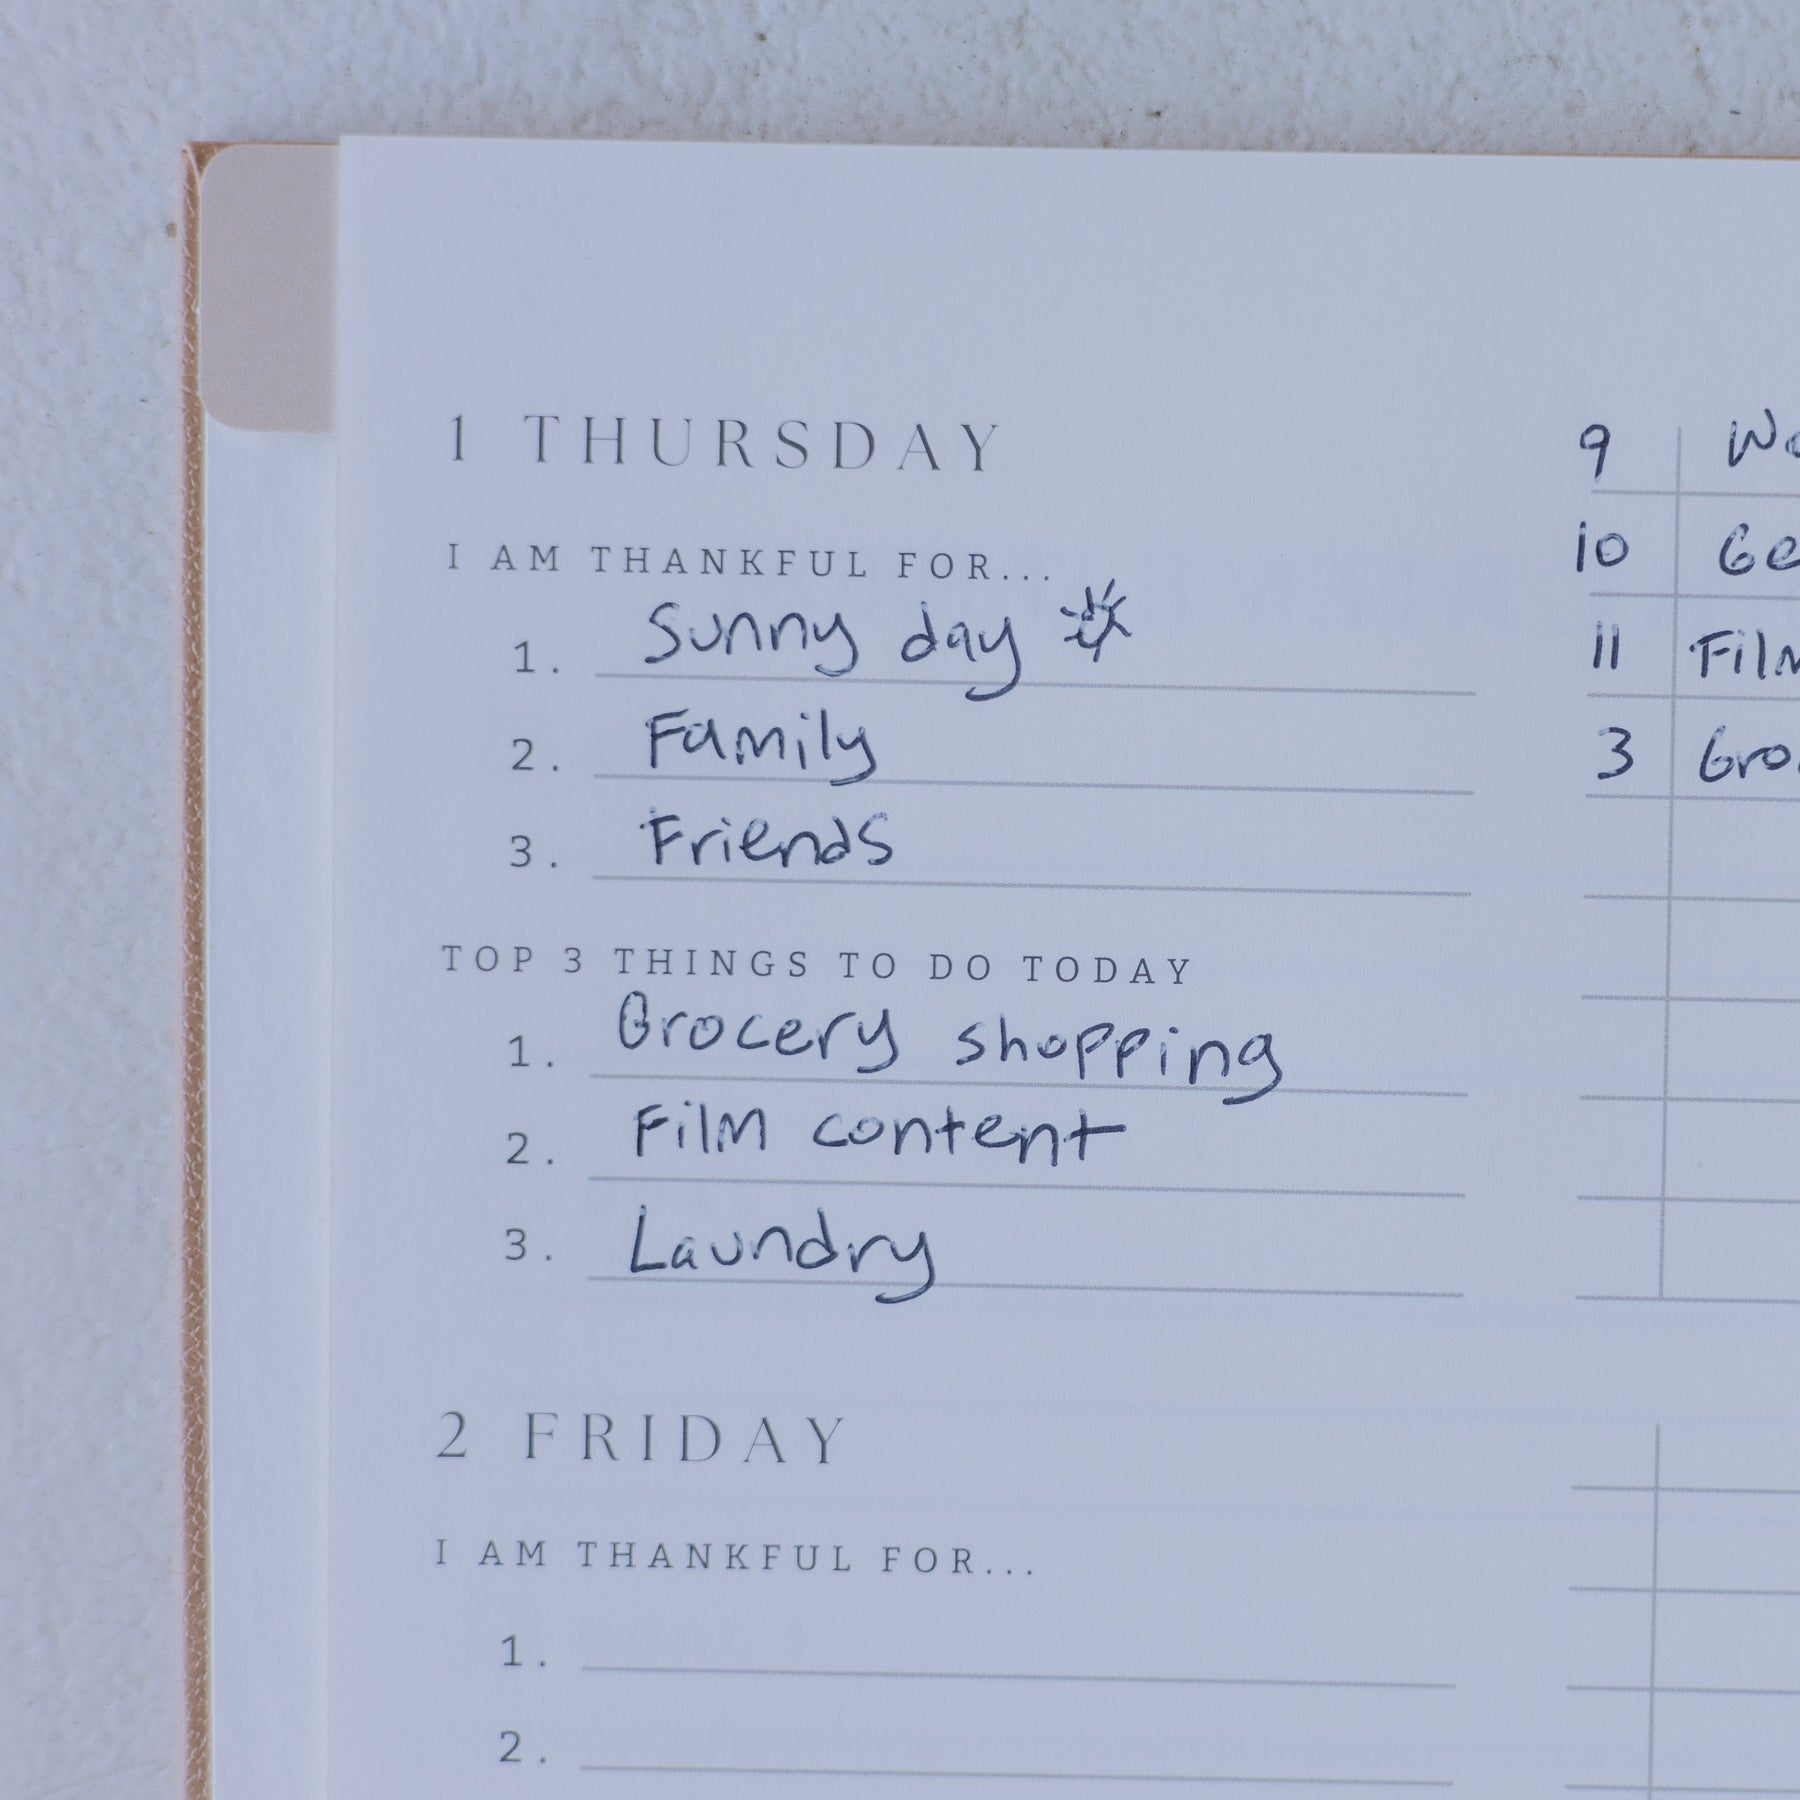 1 THURSDAY
I AM THANKFUL FOR...
1. Sunny day
2. Family
3. Friends
TOP 3 THINGS TO DO TODAY
1. Grocery shopping
2. Film content
3. Laundry
9
10
11 Film
3
2 FRIDAY
I AM THANKFUL FOR...
1.
2.